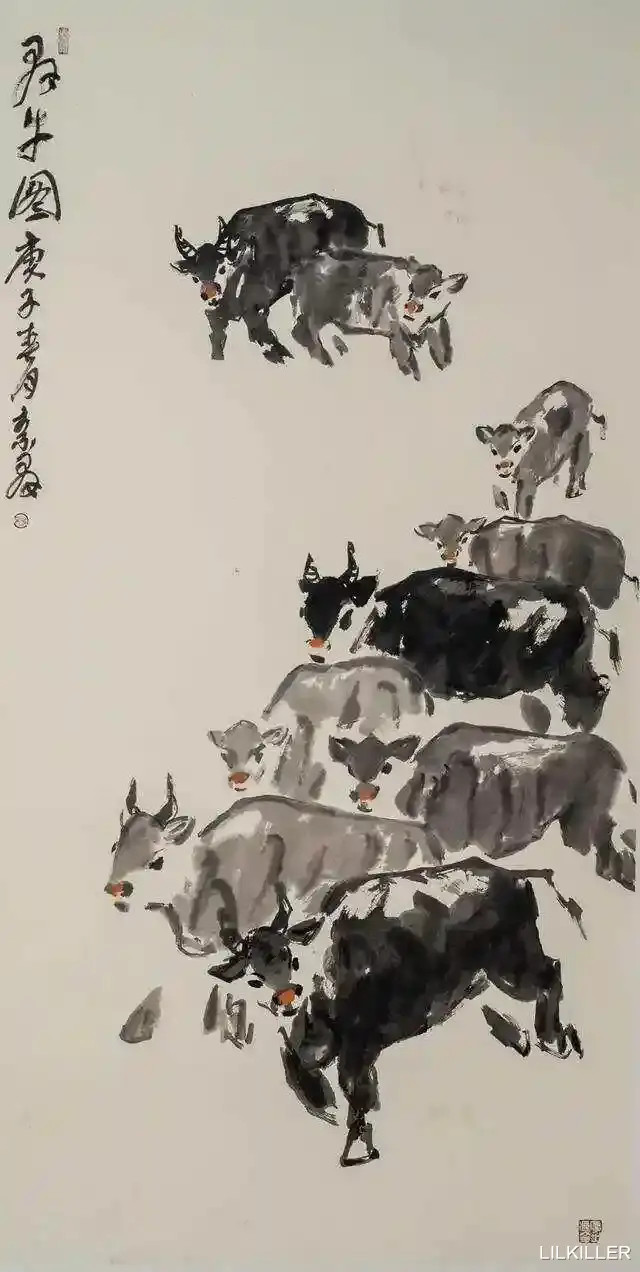 群牛图庚子春月
LILKILLER